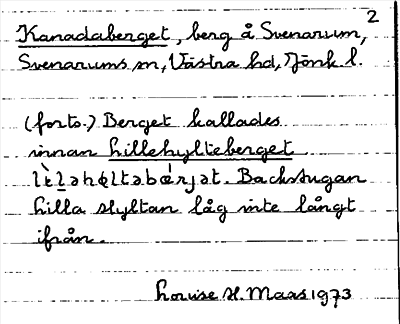 2
Kanadaberget, berg å Svenarum,
Svenarums sn, Västra hd, Jönk l.
(forts.) Berget kallades
innan Lillehylteberget
Backstugan
Lilla Hyltan låg inte långt
ifrån.
Louise H. Maas 1973